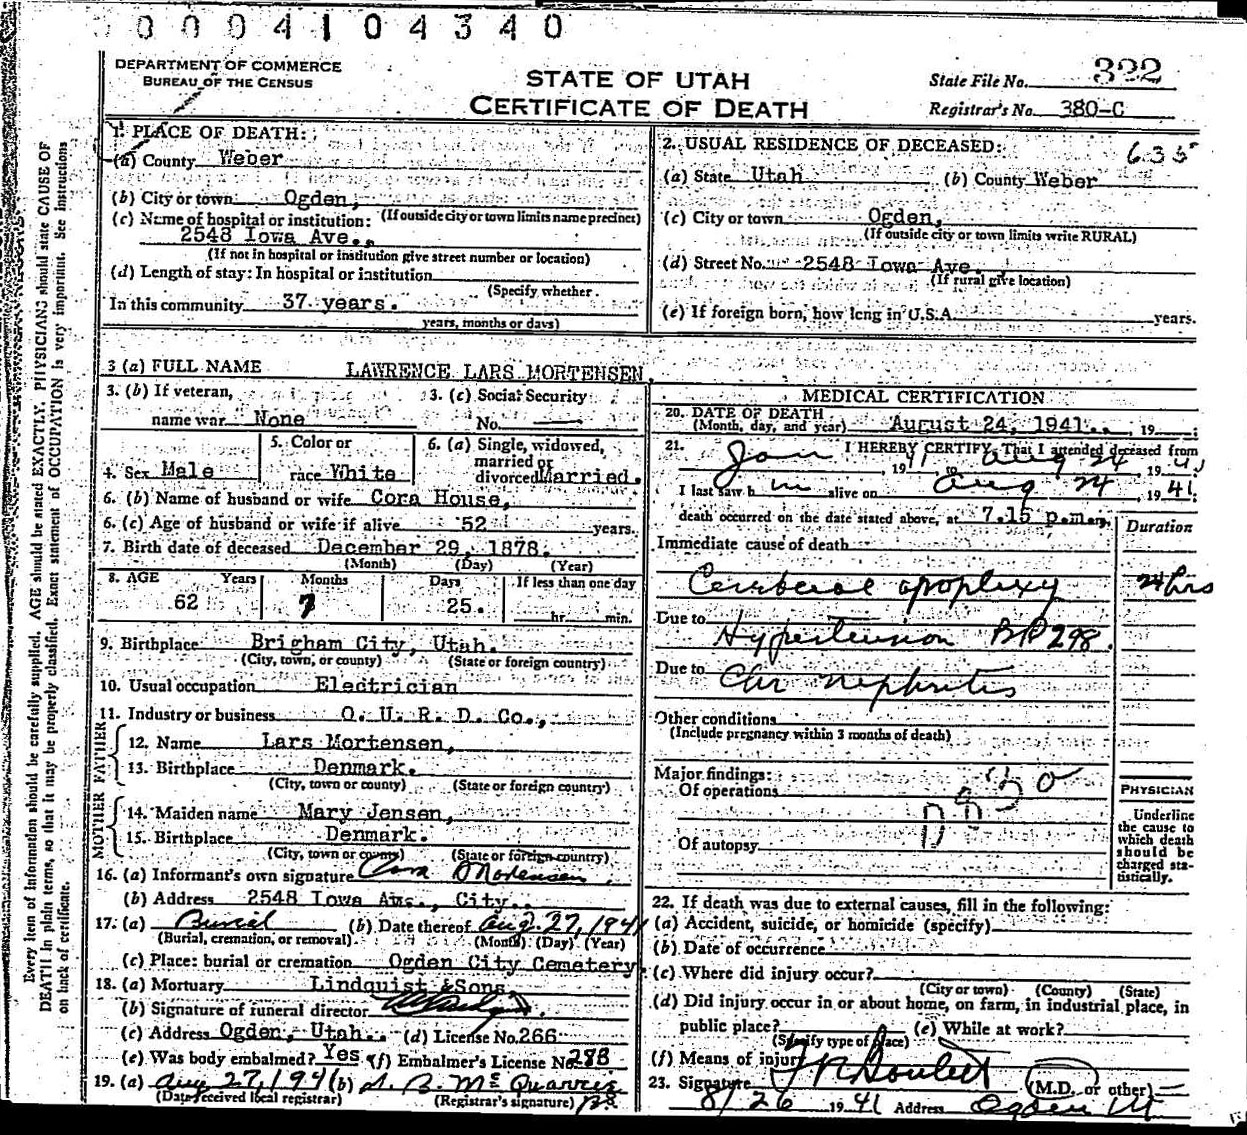 0004104340
DEPARTMENT OF COMMERCE
BUREAU OF THE CENSUS
STATE OF UTAH
CERTIFICATE OF DEATH
State File No. 322
Registrar's No. 380-C
Every item of information should be carefully supplied. AGE should be stated EXACTLY. PHYSICIANS should state CAUSE OF
DEATH in plain terms, so that it may be properly classified. Exact statement of OCCUPATION is very important. See instructions
on back of certificate.
1. PLACE OF DEATH:
(a) County Weber
(b) City or town Ogden,
(c) Name of hospital or institution: (If outside city or town limits name precinct)
2548 Iowa Ave.,
(If not in hospital or institution give street number or location)
(d) Length of stay: In hospital or institution
(Specify whether
In this community 37 years.
years, months or days)
2. USUAL RESIDENCE OF DECEASED: 635
(a) State Utah (b) County Weber
(c) City or town Ogden,
(If outside city or town limits write RURAL)
(d) Street No. 2548 Iowa Ave.
(If rural give location)
(e) If foreign born, how long in U.S.A. years.
3 (a) FULL NAME LAWRENCE LARS MORTENSEN.
3. (b) If veteran,
name war None
3. (c) Social Security
No.
4. Sex Male
5. Color or
race White
6. (a) Single, widowed,
married or
divorced Married.
6. (b) Name of husband or wife Cora House,
6. (c) Age of husband or wife if alive 52 years.
7. Birth date of deceased December 29, 1878.
(Month) (Day) (Year)
8. AGE Years Months Days If less than one day
62 7 25. hr. min.
9. Birthplace Brigham City, Utah.
(City, town, or county) (State or foreign country)
10. Usual occupation Electrician
11. Industry or business O. U. R. D. Co.,
FATHER
12. Name Lars Mortensen,
13. Birthplace Denmark.
(City, town, or county) (State or foreign country)
MOTHER
14. Maiden name Mary Jensen,
15. Birthplace Denmark.
(City, town or county) (State or foreign country)
16. (a) Informant's own signature Cora Mortensen
(b) Address 2548 Iowa Ave., City.
17. (a) Burial (b) Date thereof Aug. 27, 1941
(Burial, cremation, or removal) (Month) (Day) (Year)
(c) Place: burial or cremation Ogden City Cemetery
18. (a) Mortuary Lindquist & Sons,
(b) Signature of funeral director
(c) Address Ogden, Utah. (d) License No. 266
(e) Was body embalmed? Yes (f) Embalmer's License No. 288
19. (a) Aug 27, 1941 (b)
(Date received local registrar) (Registrar's signature)
MEDICAL CERTIFICATION
20. DATE OF DEATH
(Month, day, and year) August 24, 1941. , 19 ;
21. I HEREBY CERTIFY, That I attended deceased from
Jan , 19 11 to Aug 24 19 41
I last saw h im alive on Aug 24 , 19 41;
death occurred on the date stated above, at 7.15 p.m. m. Duration
Immediate cause of death
Cerebral apoplexy 24 hrs
Due to Hypertension BP 298.
Due to Chr nephritis
Other conditions
(Include pregnancy within 3 months of death)
Major findings:
Of operations
Of autopsy
PHYSICIAN
Underline
the cause to
which death
should be
charged sta-
tistically.
22. If death was due to external causes, fill in the following:
(a) Accident, suicide, or homicide (specify)
(b) Date of occurrence
(c) Where did injury occur?
(City or town) (County) (State)
(d) Did injury occur in or about home, on farm, in industrial place, in
public place? (e) While at work?
(Specify type of place)
(f) Means of injury
23. Signature (M.D. or other)
8/26 19 41 Address Ogden Ut